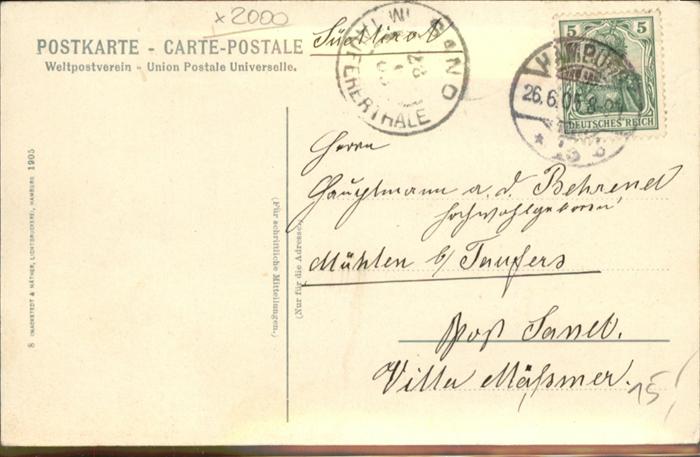 x 2000
POSTKARTE - CARTE-POSTALE
Weltpostverein - Union Postale Universelle.
Südtirol
SAND
IM
AHRNTHALE
28
5 5
DEUTSCHES REICH
HAMBURG
26.6.05. 8-9
* 13 b
Herrn
Hauptmann a. d. Behrend
hochwohlgeboren
Mühlen b/ Taufers
Post Sand.
Villa Mäßmer.
15
(Für schriftliche Mitteilungen.)
(Nur für die Adresse.)
8 KNACKSTEDT & NÄTHER, LICHTDRUCKEREI, HAMBURG 1905